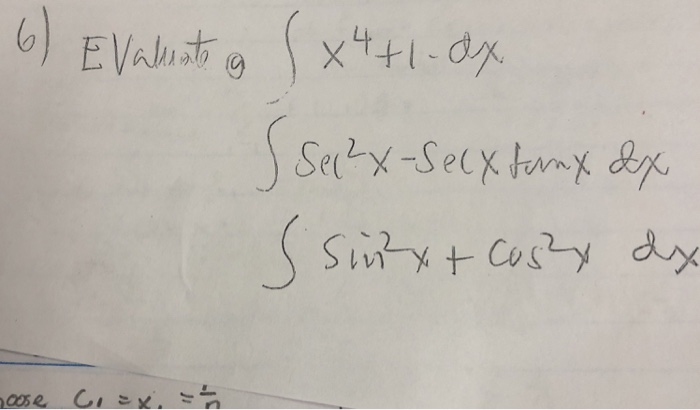 6) Evaluate ∫ x⁴+1 dx
∫ Sec²x - Secx tanx dx
∫ Sin²x + Cos²x dx
oose C₁ = x₁ = 1/n